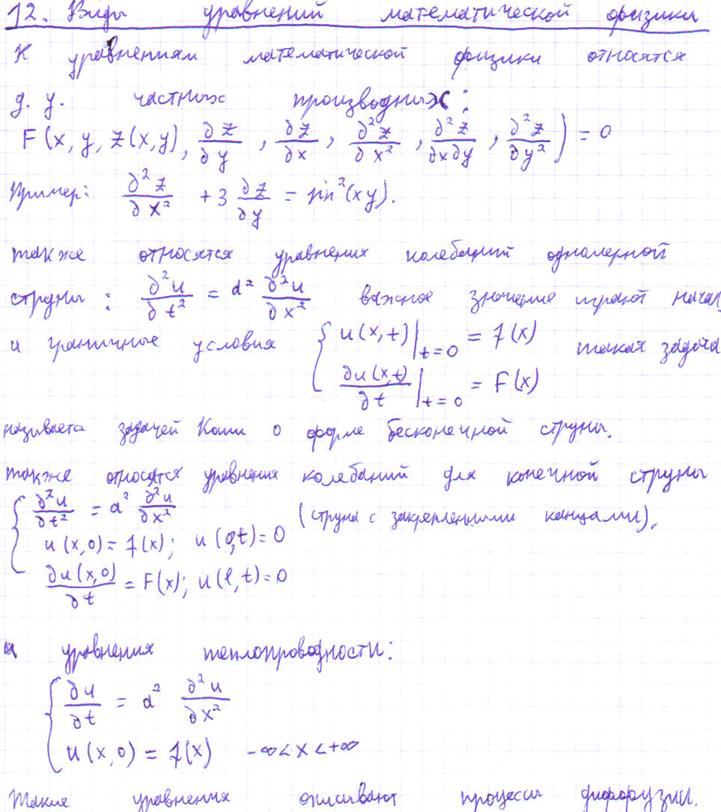 12. Виды уравнений математической физики
К уравнениям математической физики относятся
д. у. частных производных:
F(x, y, z(x,y), ∂z/∂y, ∂z/∂x, ∂²z/∂x², ∂²z/∂x∂y, ∂²z/∂y²) = 0
Пример: ∂²z/∂x² + 3 ∂z/∂y = sin²(xy).
также относятся уравнения колебаний одномерной
струны: ∂²u/∂t² = a² ∂²u/∂x² важное значение играют начал
и граничные условия { u(x,t)|t=0 = f(x) такая задача
∂u(x,t)/∂t|t=0 = F(x)
называета задачей Коши о форме бесконечной струны.
также относятся уравнения колебаний для конечной струны
{ ∂²u/∂t² = a² ∂²u/∂x² (струна с закрепленными концами),
u(x,0) = f(x); u(0,t) = 0
∂u(x,0)/∂t = F(x); u(l,t) = 0
и уравнения теплопроводности:
{ ∂u/∂t = a² ∂²u/∂x²
u(x,0) = f(x) -∞<x<+∞
Такие уравнения описывают процессы диффузии.